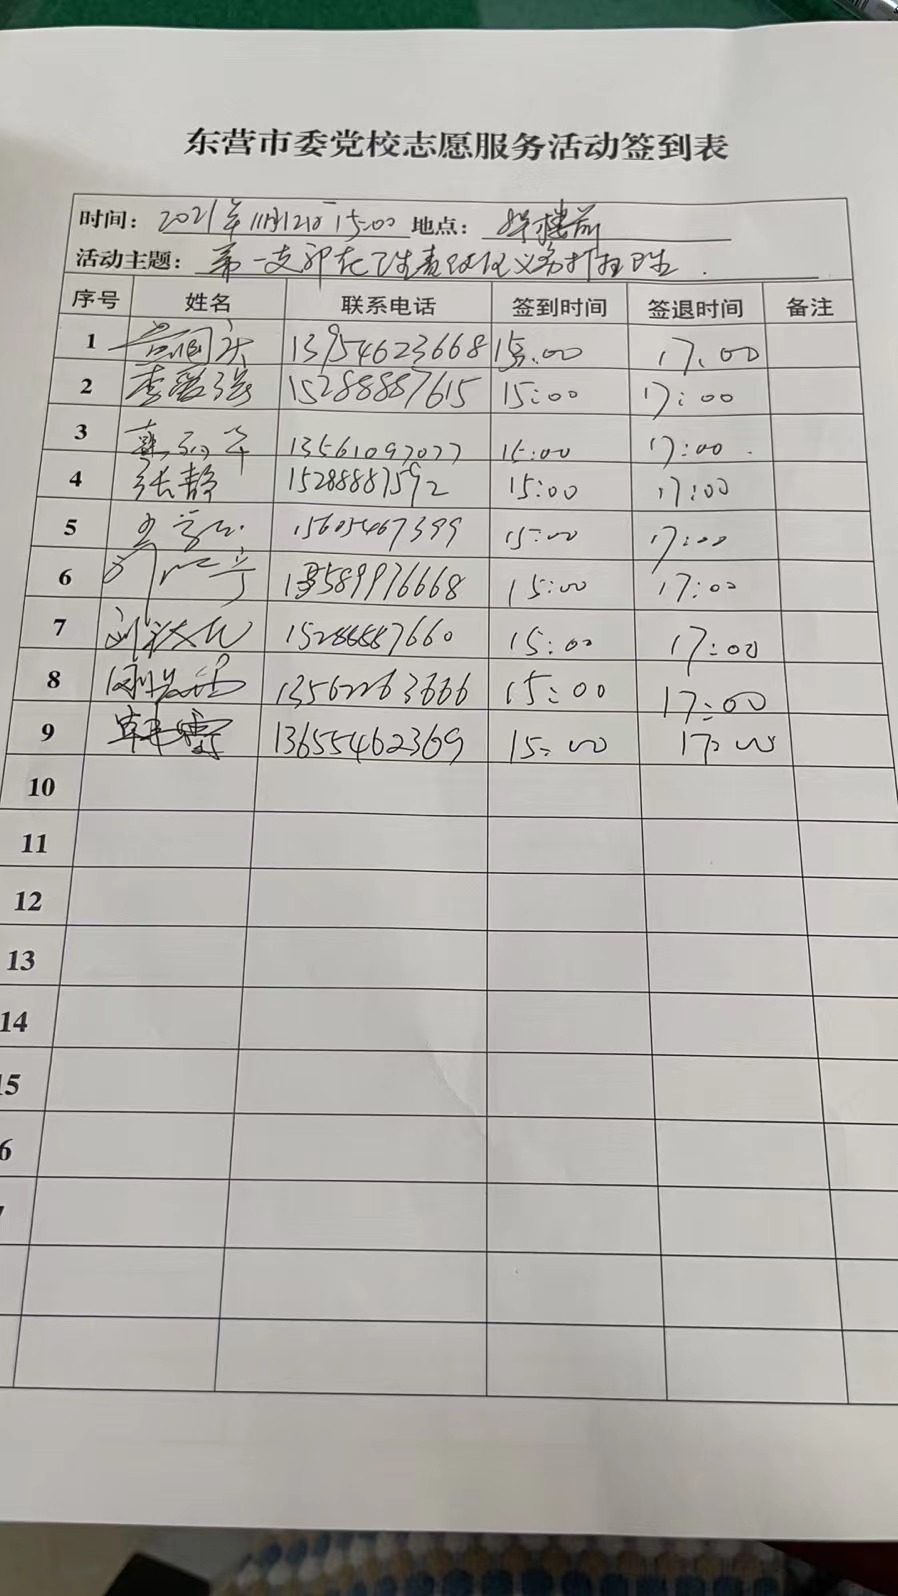 东营市委党校志愿服务活动签到表
时间: 2021年11月12日 15:00 地点: 楼前
活动主题: 第一支部在卫生责任区义务打扫卫生.
序号 姓名 联系电话 签到时间 签退时间 备注
1 13954623668 15:00 17:00
2 李爱强 15288887615 15:00 17:00
3 13561097077 15:00 17:00
4 张静 15288887592 15:00 17:00
5 15605467399 15:00 17:00
6 13589976668 15:00 17:00
7 15288887660 15:00 17:00
8 13562263666 15:00 17:00
9 13655462369 15:00 17:00
10
11
12
13
14
15
6